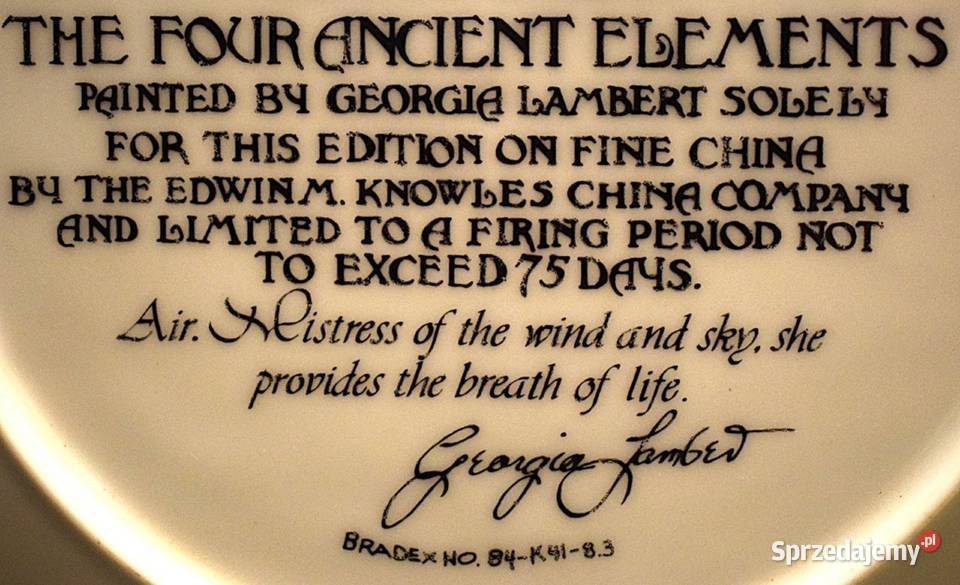 THE FOUR ANCIENT ELEMENTS
PAINTED BY GEORGIA LAMBERT SOLELY
FOR THIS EDITION ON FINE CHINA
BY THE EDWIN M. KNOWLES CHINA COMPANY
AND LIMITED TO A FIRING PERIOD NOT
TO EXCEED 75 DAYS.
Air. Mistress of the wind and sky, she
provides the breath of life.
Georgia Lambert
BRADEX NO. 84-K41-8.3
Sprzedajemy.pl